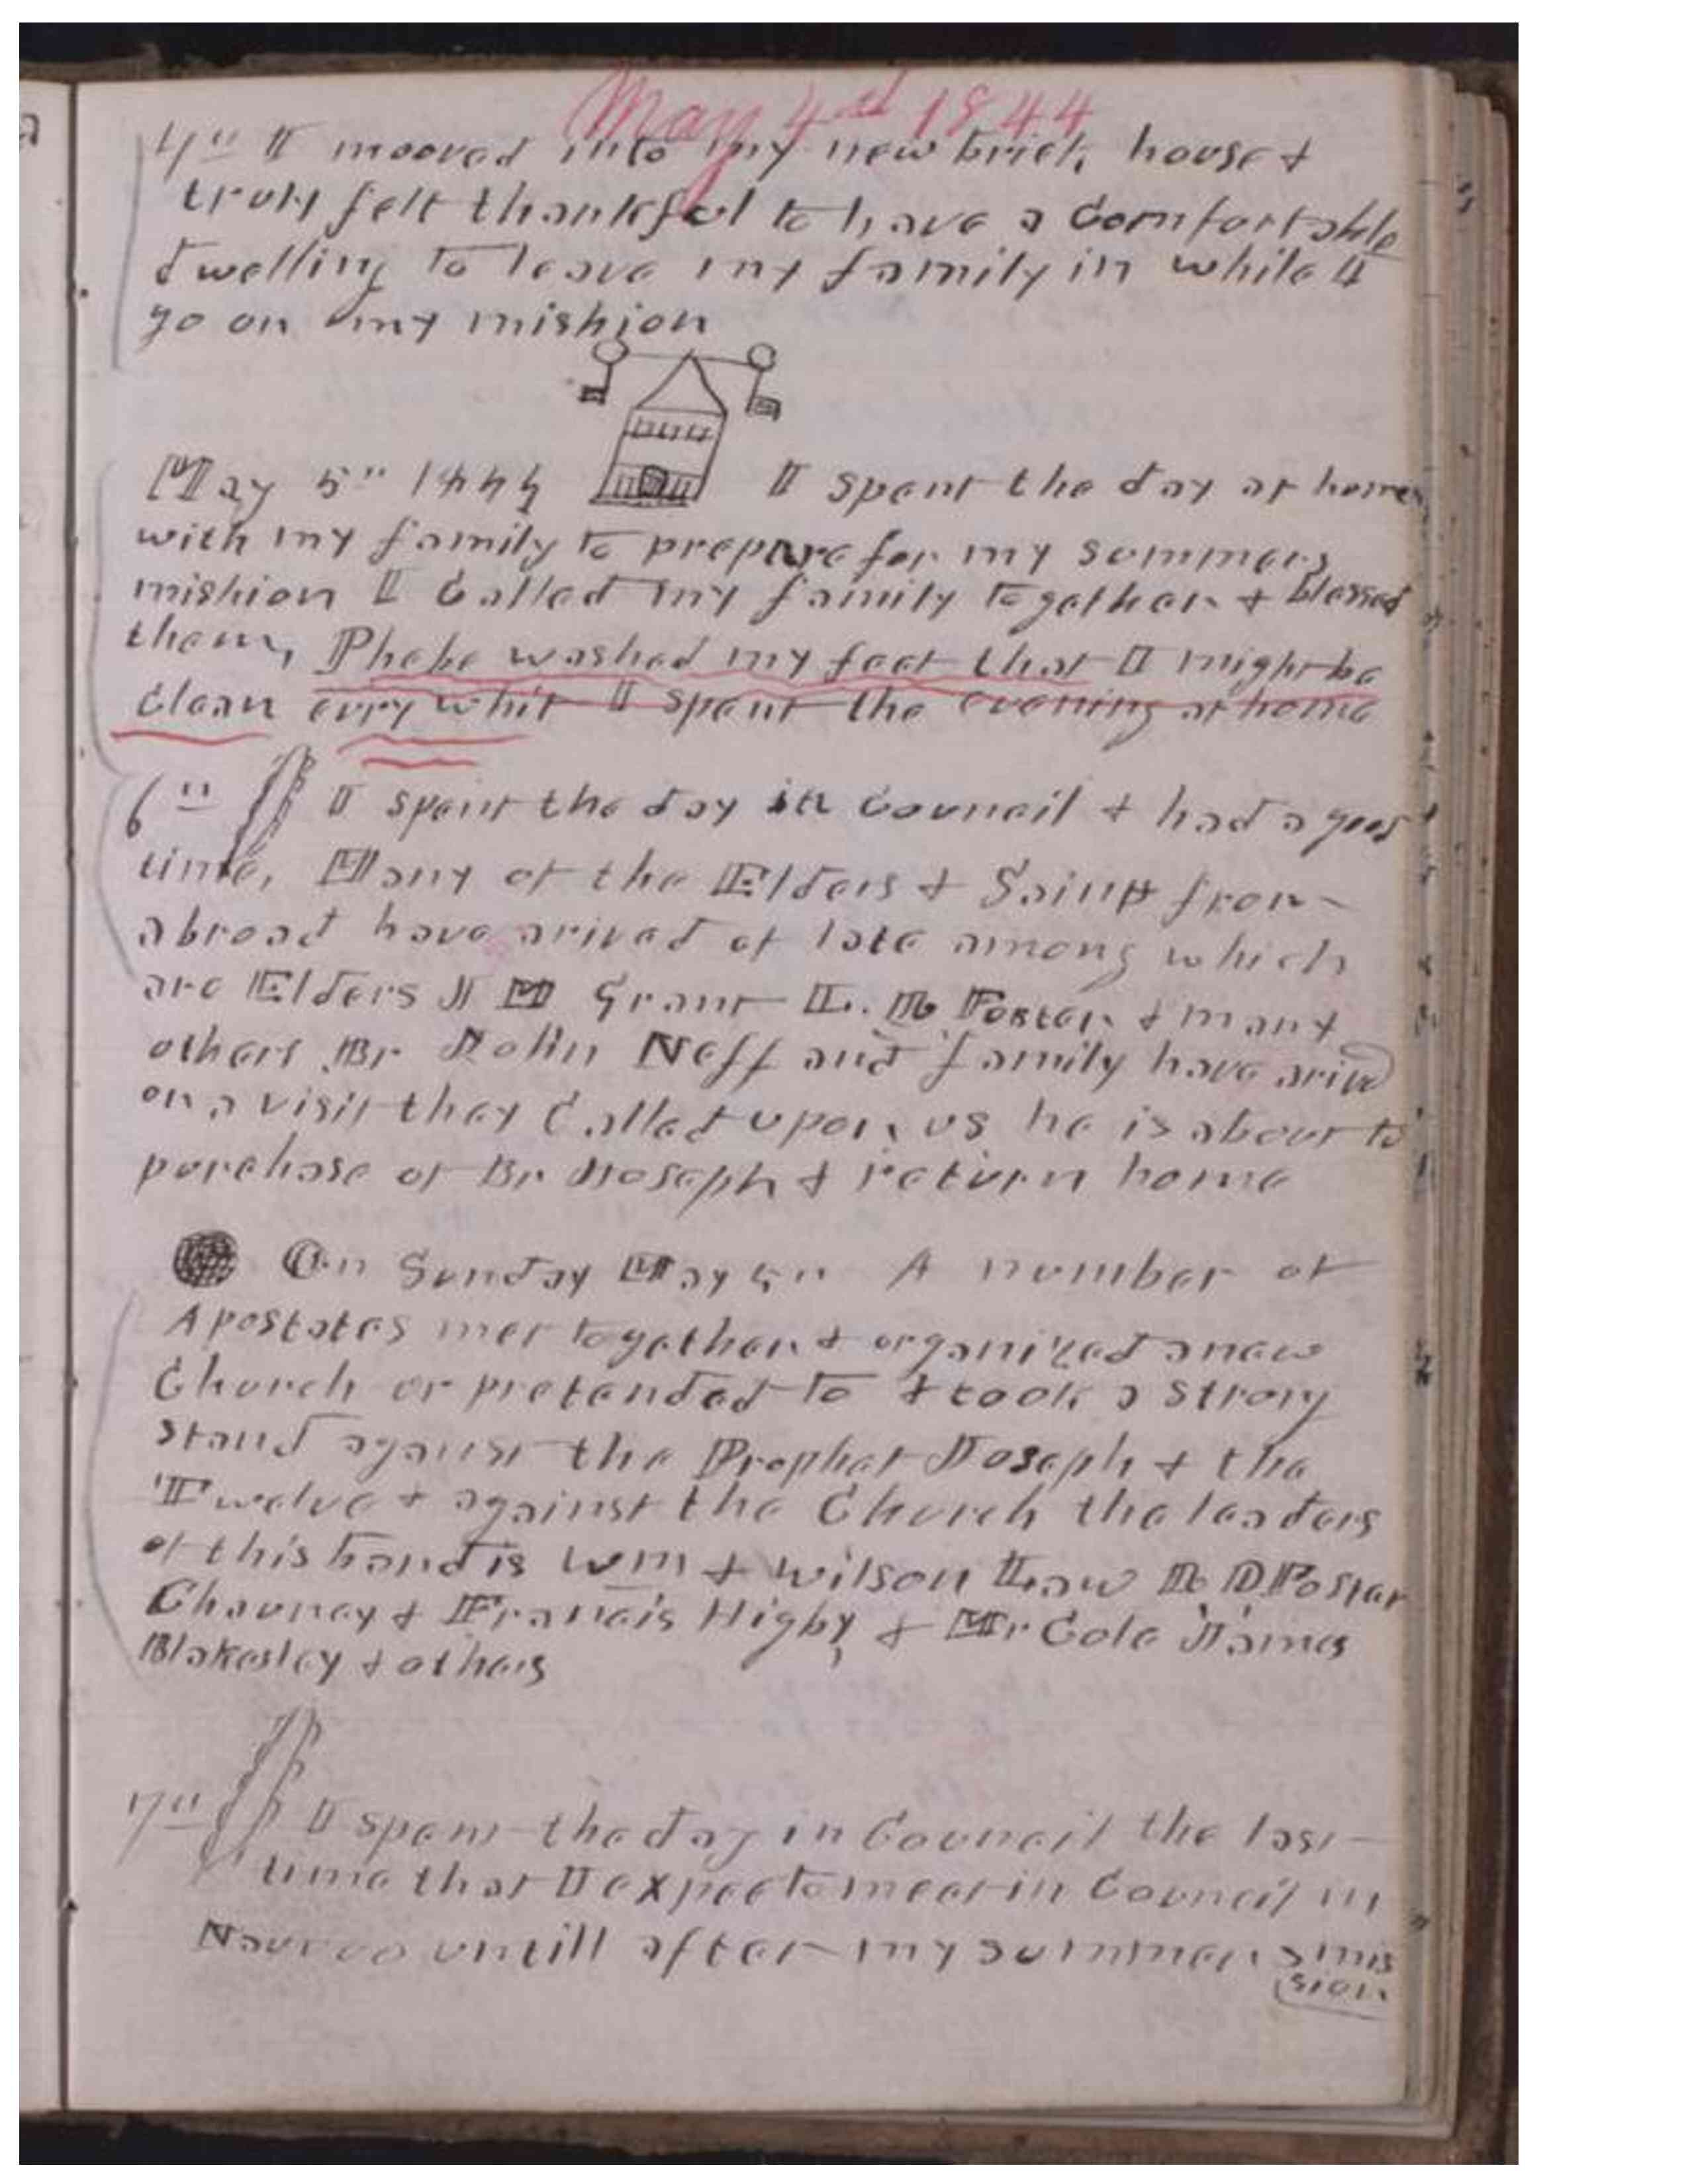 May 4th 1844
4th I mooved into my new brick house &
truly felt thankful to have a Comfortable
dwelling to leave my family in while I
go on my mishion
May 5th 1844 I spent the day at home
with my family to prepare for my summers
mishion I Called my family together & blessed
them, Phebe washed my feet that I might be
Clean evry whit I spent the evening at home
6th I spent the day in Council & had a good
time, Many of the Elders & Saints from
abroad have arived of late among which
are Elders J M Grant L. R Foster & many
others Br John Neff and family have arived
on a visit they Called upon us he is about to
purchase of Br Joseph & return home
On Sunday May 5th A number of
Apostates met together & organized a new
Church or pretended to & took a strong
stand against the Prophet Joseph & the
Twelve & against the Church the leaders
of this band is Wm & Wilson Law R D Foster
Chauncy & Francis Higby, & Mr Cole James
Blakesley & others
7th I spent the day in Council the last
time that I expect to meet in Council in
Nauvoo untill after my summers mis
sion